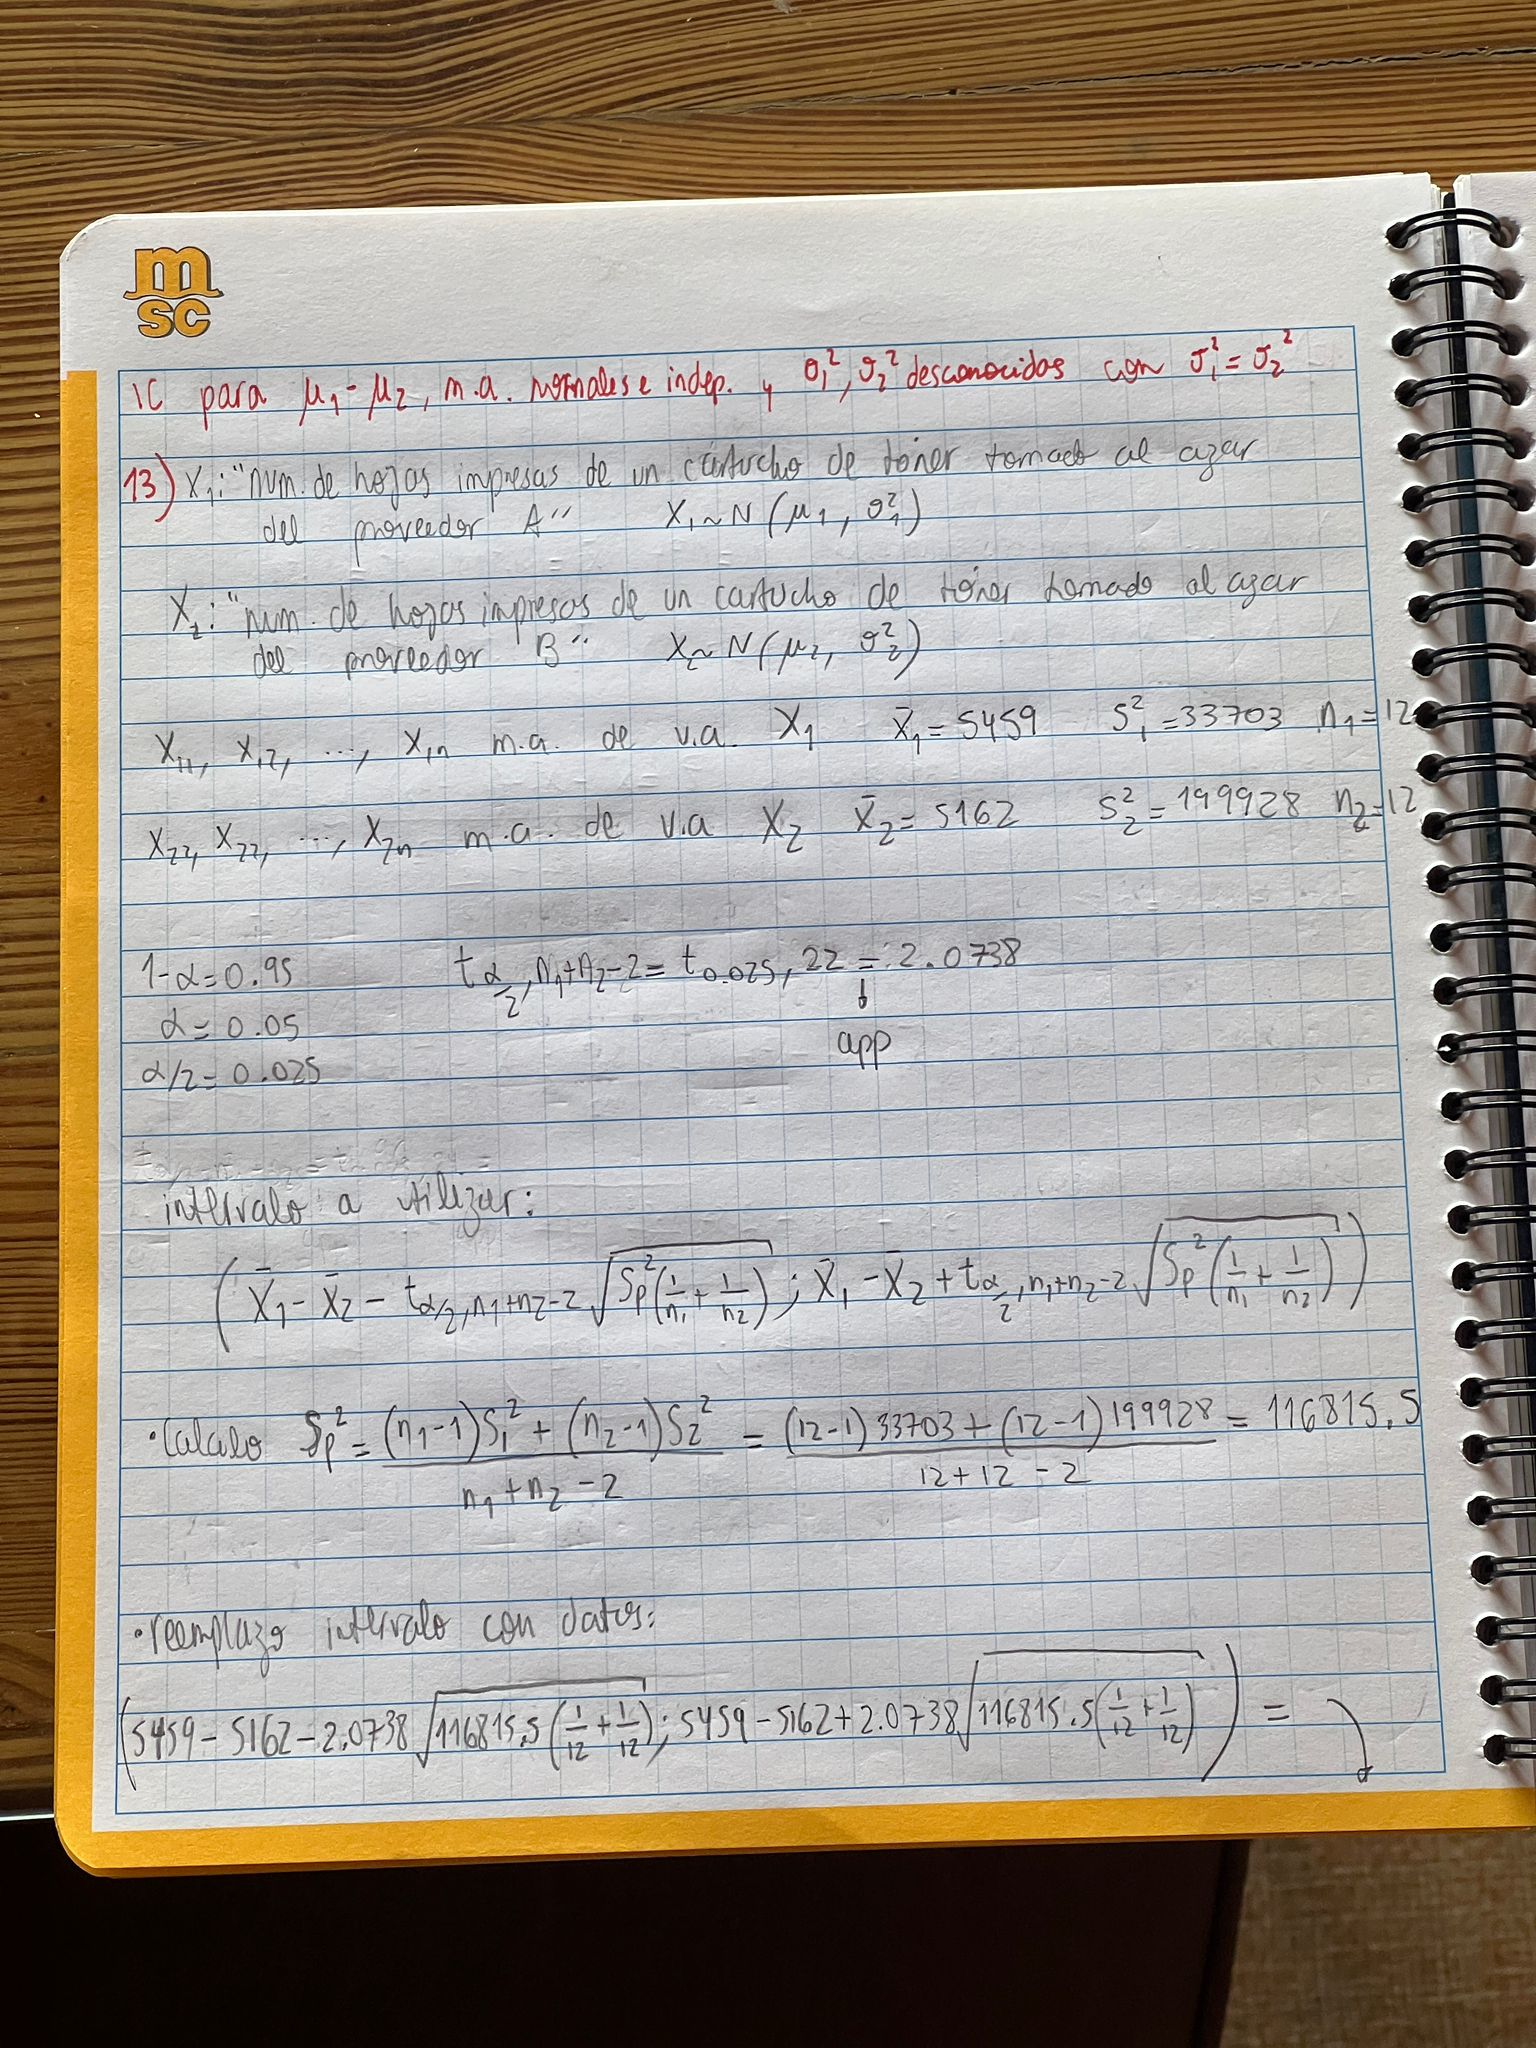 m
sc
IC para μ₁ - μ₂, m.a. normales e indep. y σ₁², σ₂² desconocidos con σ₁² = σ₂²
13) X₁: "num. de hojas impresas de un cartucho de tóner tomado al azar
del proveedor A" X₁ ~ N (μ₁, σ₁²)
X₂: "num. de hojas impresas de un cartucho de tóner tomado al azar
del proveedor B" X₂ ~ N (μ₂, σ₂²)
X₁₁, X₁₂, ..., X₁ₙ m.a. de v.a. X₁ x̄₁ = 5459 S₁² = 33703 n₁ = 12
X₂₂, X₂₂, ..., X₂ₙ m.a. de v.a X₂ x̄₂ = 5162 S₂² = 199928 n₂ = 12
1-α = 0.95 t α/2, n₁+n₂-2 = t 0.025, 22 = 2.0738
α = 0.05 ↓
α/2 = 0.025 app
intervalo a utilizar:
( X̄₁ - X̄₂ - t α/2, n₁+n₂-2 √(Sp² (1/n₁ + 1/n₂)) ; X̄₁ - X̄₂ + t α/2, n₁+n₂-2 √(Sp² (1/n₁ + 1/n₂)) )
• Calculo Sp² = ((n₁-1)S₁² + (n₂-1)S₂²) / (n₁ + n₂ - 2) = ((12-1) 33703 + (12-1) 199928) / (12 + 12 - 2) = 116815.5
• reemplazo intervalo con datos:
( 5459 - 5162 - 2.0738 √(116815.5 (1/12 + 1/12)) ; 5459 - 5162 + 2.0738 √(116815.5 (1/12 + 1/12)) ) =